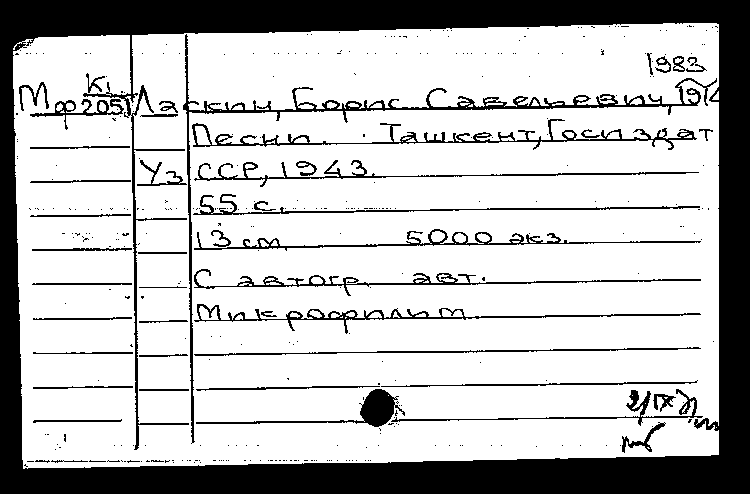 1983
Мф К1/2051 Ласкин, Борис Савельевич, 1914
Песни. Ташкент, Госиздат
УзССР, 1943.
55 с.
13 см. 5000 экз.
С автогр. авт.
Микрофильм
2/IX